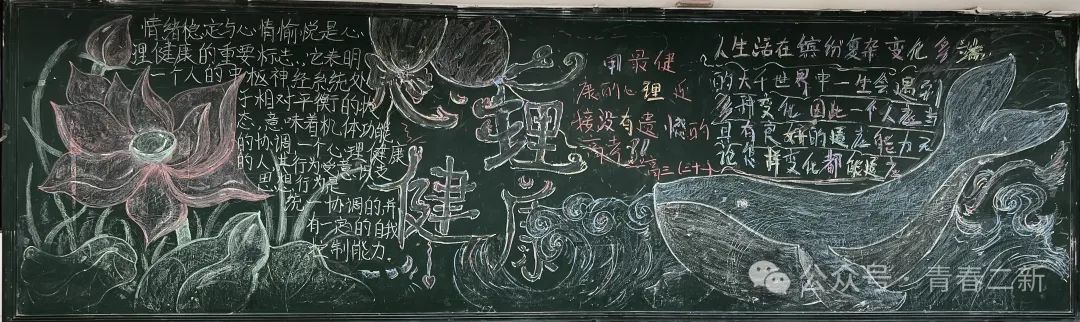 情绪稳定与心情愉悦是心
理健康的重要标志，它表明
一个人的中枢神经系统处
于相对平衡的状
态，意味着机体功能
的协调一个心理健康
的人其行为受意识支
思想行为是
统一协调的并
有一定的自我
控制能力.
心理
健康
用最健
康的心理迎
接没有遗憾的
高考!!
高三(二十一)
人生活在缤纷复杂变化多端
的大千世界中一生会遇到
多种变化因此一个人应当
具有良好的适应能力无
论什样变化都能适应
公众号·青春二新